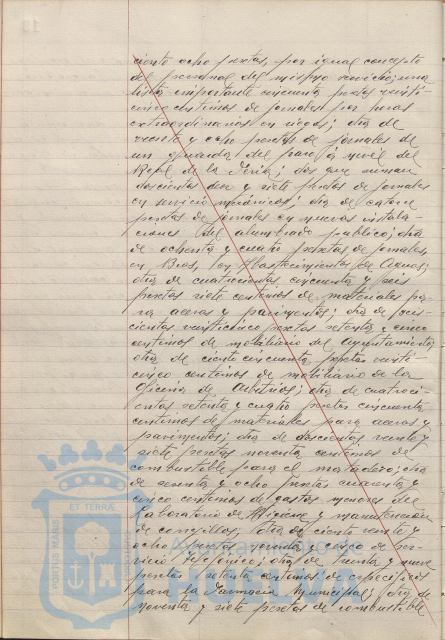 ciento ocho pesetas, por igual concepto
del personal del mismo servicio; una
lista importante cincuenta pesetas veinti-
cinco centimos de jornales por horas
extraordinarias en riegos; otra de
veinte y ocho pesetas de jornales de
un guarda del paso a nivel del
de la Feria; dos que suman
doscientas diez y siete pesetas de jornales
en servicio mecánicos; otra de catorce
pesetas de jornales en nuevas instala-
ciones del alumbrado público; otra
de ochenta y cuatro pesetas de jornales,
en Abastecimientos de Aguas;
otra de cuatrocientas cincuenta y seis
pesetas siete centimos de materiales pa-
ra aceras y pavimentos; otra de seis-
cientas veinticinco pesetas setenta y cinco
centimos de mobiliario del Ayuntamiento;
otra de ciento cincuenta pesetas veinti-
cinco centimos de mobiliario de la
Oficina de Arbitrios; otra de cuatroci-
entas setenta y cuatro pesetas cincuenta
centimos de materiales para aceras y
pavimentos; otra de doscientas veinte y
siete pesetas noventa centimos de
combustible para el matadero; otra
de sesenta y ocho pesetas cuarenta y
cinco centimos de gastos menores del
Laboratorio de Higiene y manutención
de conejillos; otra de ciento veinte y
ocho pesetas noventa y cinco de ser-
vicio telefónico; otra de treinta y nueve
pesetas setenta centimos de especificos
para la Farmacia Municipal; otra de
noventa y siete pesetas de combustible
PORTUS MARIS ET TERRÆ